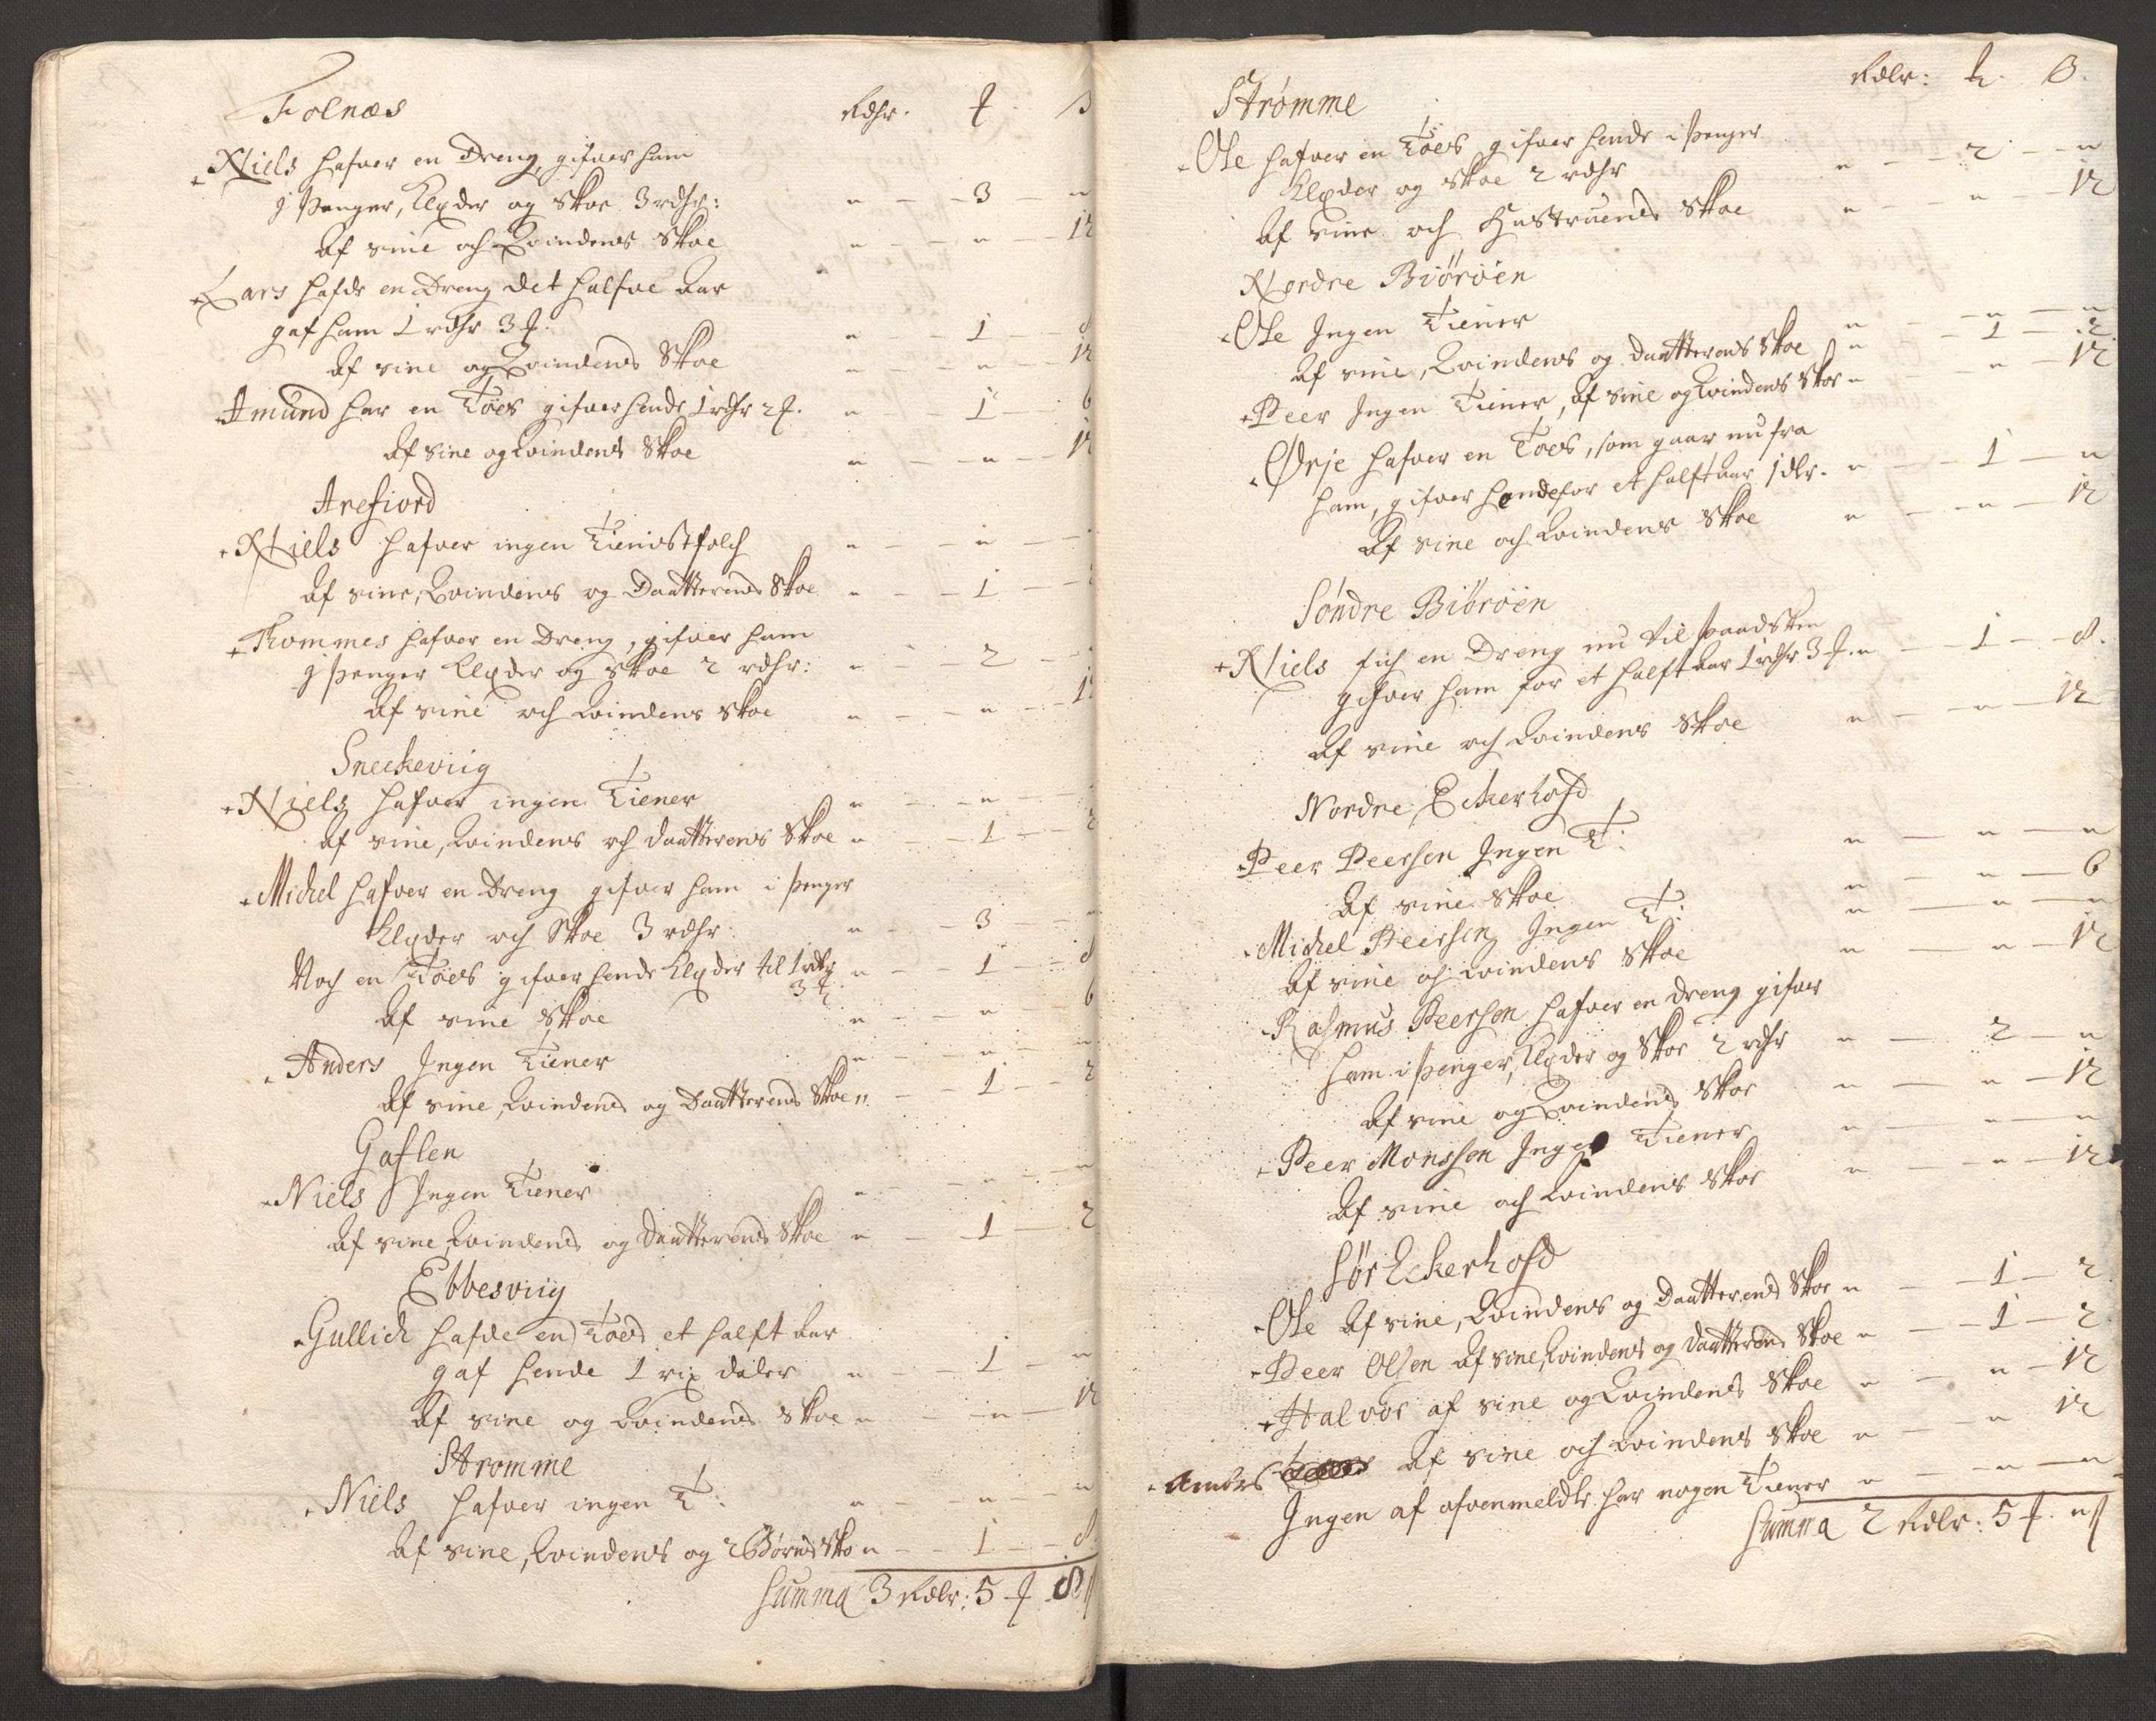 Folnæs Rdhr. ƒ. ß
+ Niels hafver en Dreng, gifver ham
j Penger, Klæder og Skoe 3 rdhr: „ — 3 — „
Af sine och Qvindens Skoe „ — „ — 12
+ Lars hafde en Dreng det halfve Aar
gaf ham 1 rdhr 3 ƒ. „ — 1 — 8
Af sine og Qvindens Skoe „ — „ — 12
Amund har en Töes gifver hende 1 rdhr 2 ƒ. „ — 1 — 6
Af sine og Qvindens Skoe „ — „ — 12
Arefiord
+ Niels hafver ingen Tienistfolch „ — „ —
Af sine, Qvindens og Daatterens Skoe „ — 1 — 2
+ Thommes hafver en Dreng, gifver ham
j Penger Klæder og Skoe 2 rdhr: „ — 2 —
Af sine och Qvindens Skoe „ — „ — 12
Sneckeviig
+ Niels hafver ingen Tiener „ — „ —
Af sine, Qvindens och Daatterens Skoe „ — 1 — 2
+ Michel hafver en Dreng gifver ham i Penger
Klæder och Skoe 3 rdhr: „ — 3 — „
Noch en Töes gifver hende Klæder til 1 rdr „ — 1 — 8
3 ƒ
Af sine Skoe „ — „ — 6
+ Anders Ingen Tiener „ — „ — „
Af sine, Qvindens og Daatterens Skoe „ — 1 — 2
Gaflen
+ Niels Ingen Tiener „ — „ — „
Af sine, Qvindens og Daatterens Skoe „ — 1 — 2
Ebbesviig
+ Gullich hafde en Töes et halft Aar
gaf hende 1 rix daler „ — 1 — „
Af sine og Qvindens Skoe „ — „ — 12
Stromme
+ Niels hafver ingen T: „ — „ — „
Af sine, Qvindens og 2 Börns Sko „ — 1 — 8
Summa 3 Rdlr: 5 ƒ 8 ß
Strømme Rdlr: ƒ. ß.
+ Ole hafver en Töes gifver hende i Penger
Klæder og Skoe 2 rdhr „ — 2 — „
Af sine och Hustruens Skoe „ — „ — 12
Nordre Biöröen
+ Ole Ingen Tiener „ — „ — „
Af sine, Qvindens og Daatterens Skoe „ — 1 — 2
+ Peer Ingen Tiener, Af sine og Qvindens Skoe „ — „ — 12
+ Ørje hafver en Töes, som gaar nu fra
ham, gifver hende for et halft Aar 1 dlr. „ — 1 — „
Af sine och Qvindens Skoe „ — „ — 12
Söndre Biöröen
+ Niels fich en Dreng nu til Paadsken
gifver ham for et halft Aar 1 rdhr 3 ƒ. „ — 1 — 8.
Af sine och Qvindens Skoe „ — „ — 12
Nordre Eckerhofd
+ Peer Peersen Ingen T: „ — „ — „
Af sine Skoe „ — „ — 6
+ Michel Peersen Ingen T: „ — „ — „
Af sine och Qvindens Skoe „ — „ — 12
+ Rasmus Peersen hafver en Dreng gifver
ham i Penger, Klæder og Skoe 2 rdhr „ — 2 — „
Af sine og Qvindens Skoe „ — „ — 12
+ Peer Monssen Ingen Tiener „ — „ — „
Af sine och Qvindens Skoe „ — „ — 12
Sör Eckerhofd
+ Ole Af sine, Qvindens og Daatterens Skoe „ — 1 — 2
+ Peer Olsen Af sine, Qvindens og Daatterens Skoe „ — 1 — 2
+ Halvor af sine og Qvindens Skoe „ — „ — 12
+ Anders Af sine och Qvindens Skoe „ — „ 12
Ingen af ofvenmeldte har nogen Tiener „ — „ — „
Summa 2 Rdlr: 5 ƒ. „ ß